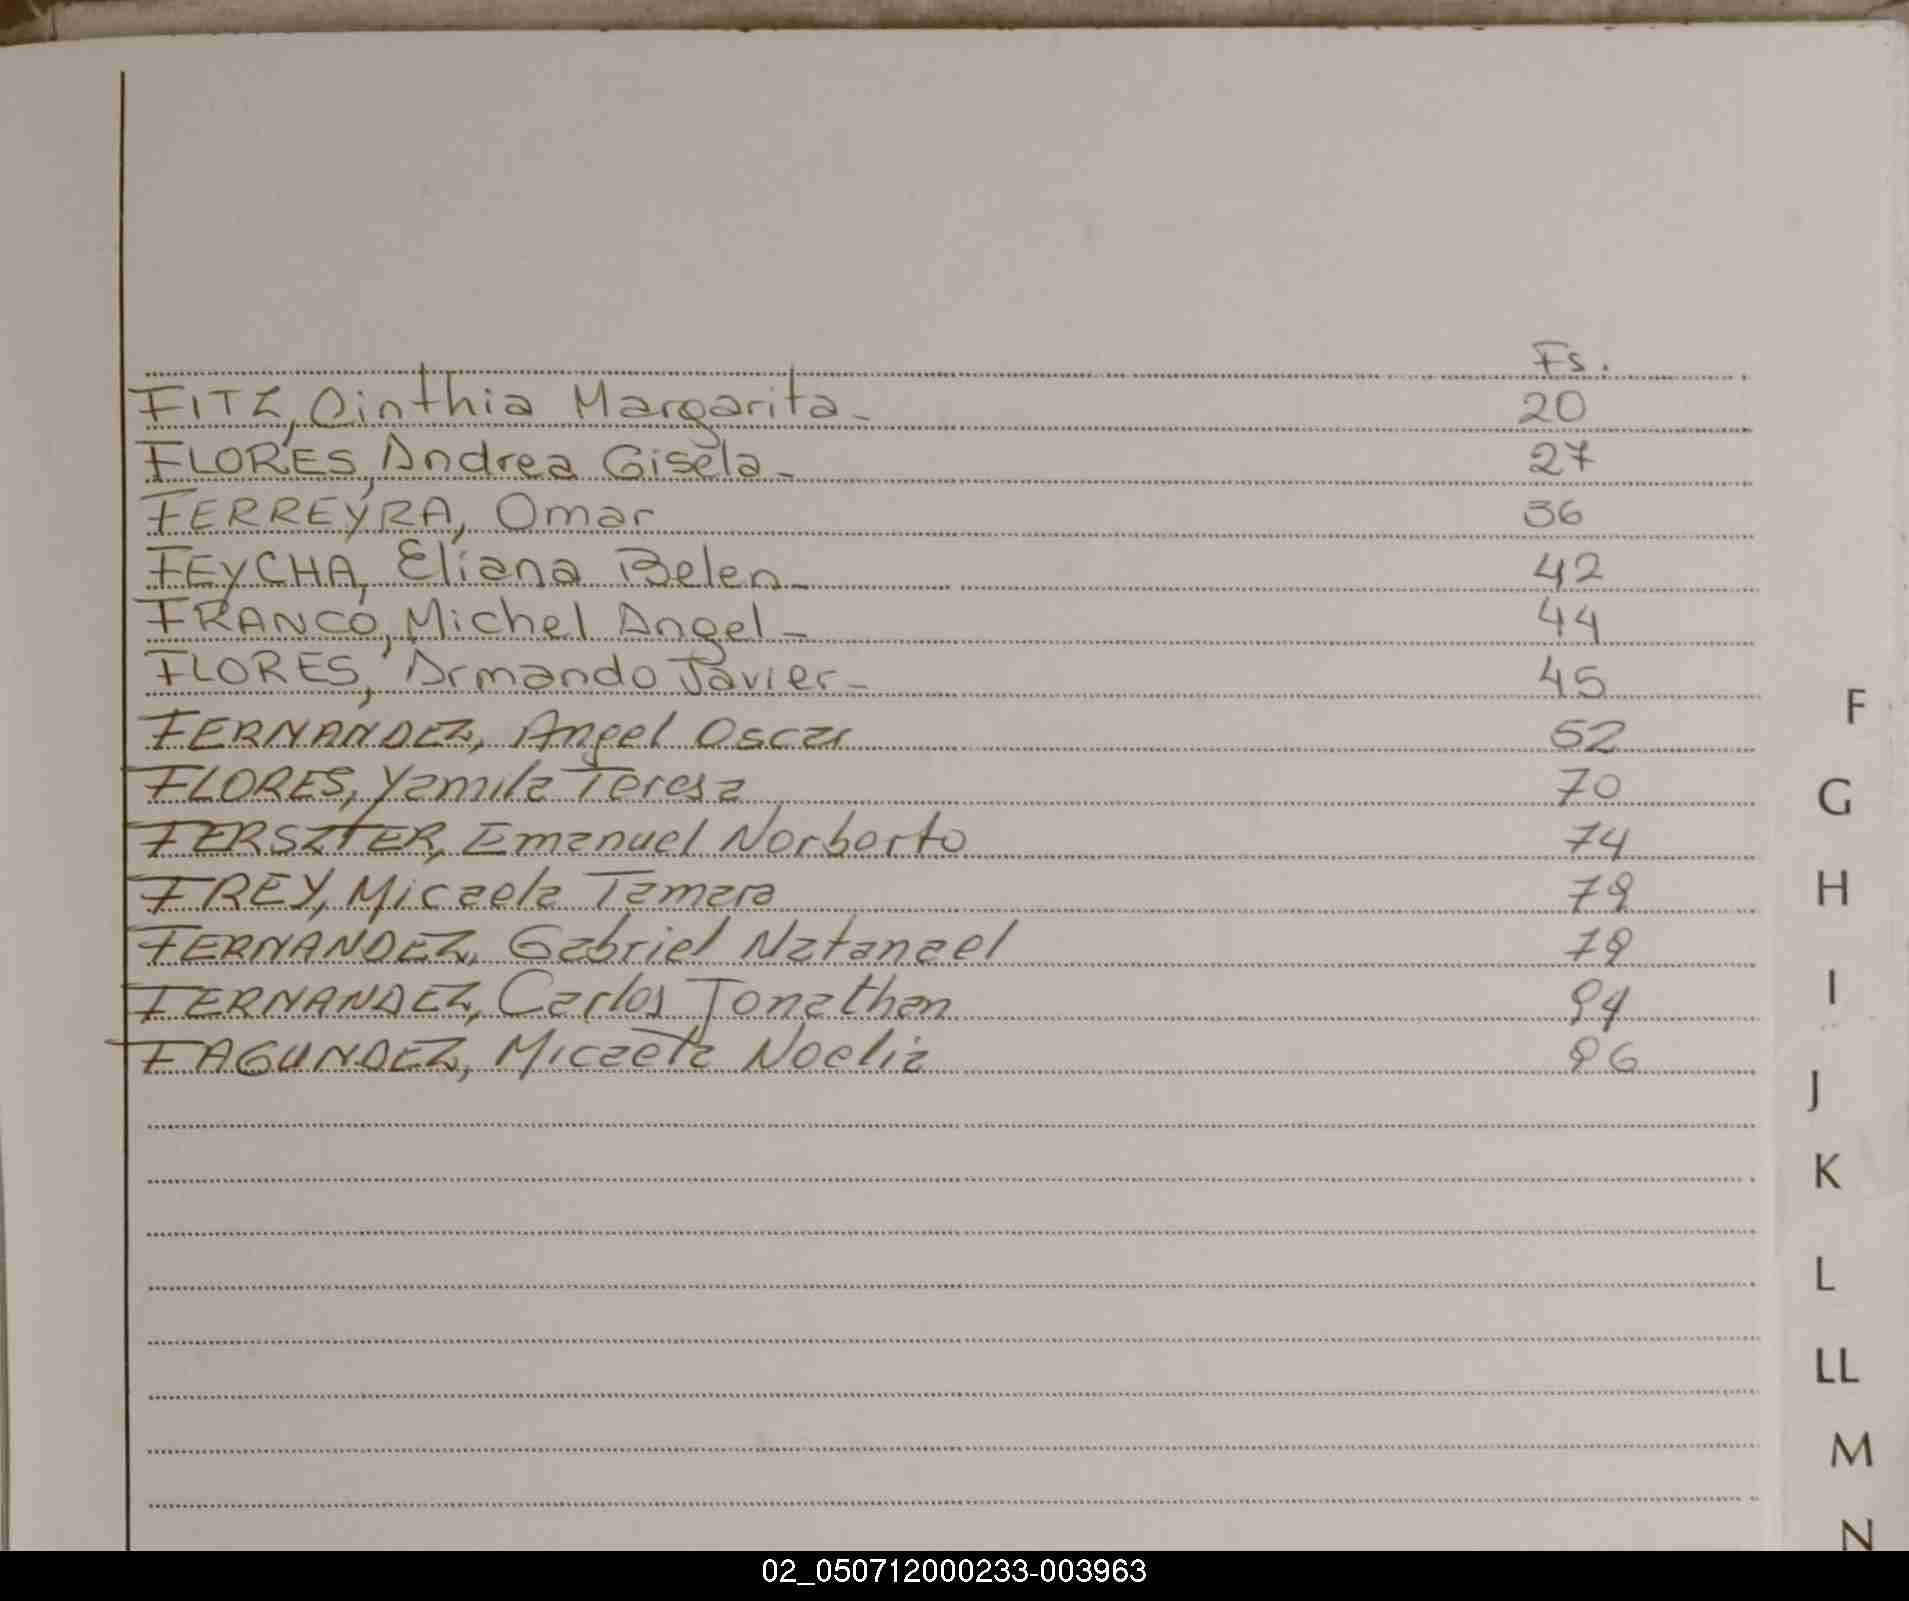 Fs.
FITZ, Cinthia Margarita- 20
FLORES, Andrea Gisela- 27
FERREYRA, Omar 36
FEYCHA, Eliana Belen- 42
FRANCO, Michel Angel- 44
FLORES, Armando Javier- 45
FERNANDEZ, Angel Oscar 52
FLORES, Yamila Teresa 70
FERSZTER, Emanuel Norberto 74
FREY, Micaela Tamara
FERNANDEZ, Gabriel Natanael
FERNANDEZ, Carlos Jonathan
FAGUNDEZ, Micaela Noelia
F
G
H
I
J
K
L
LL
M
N
02_050712000233-003963